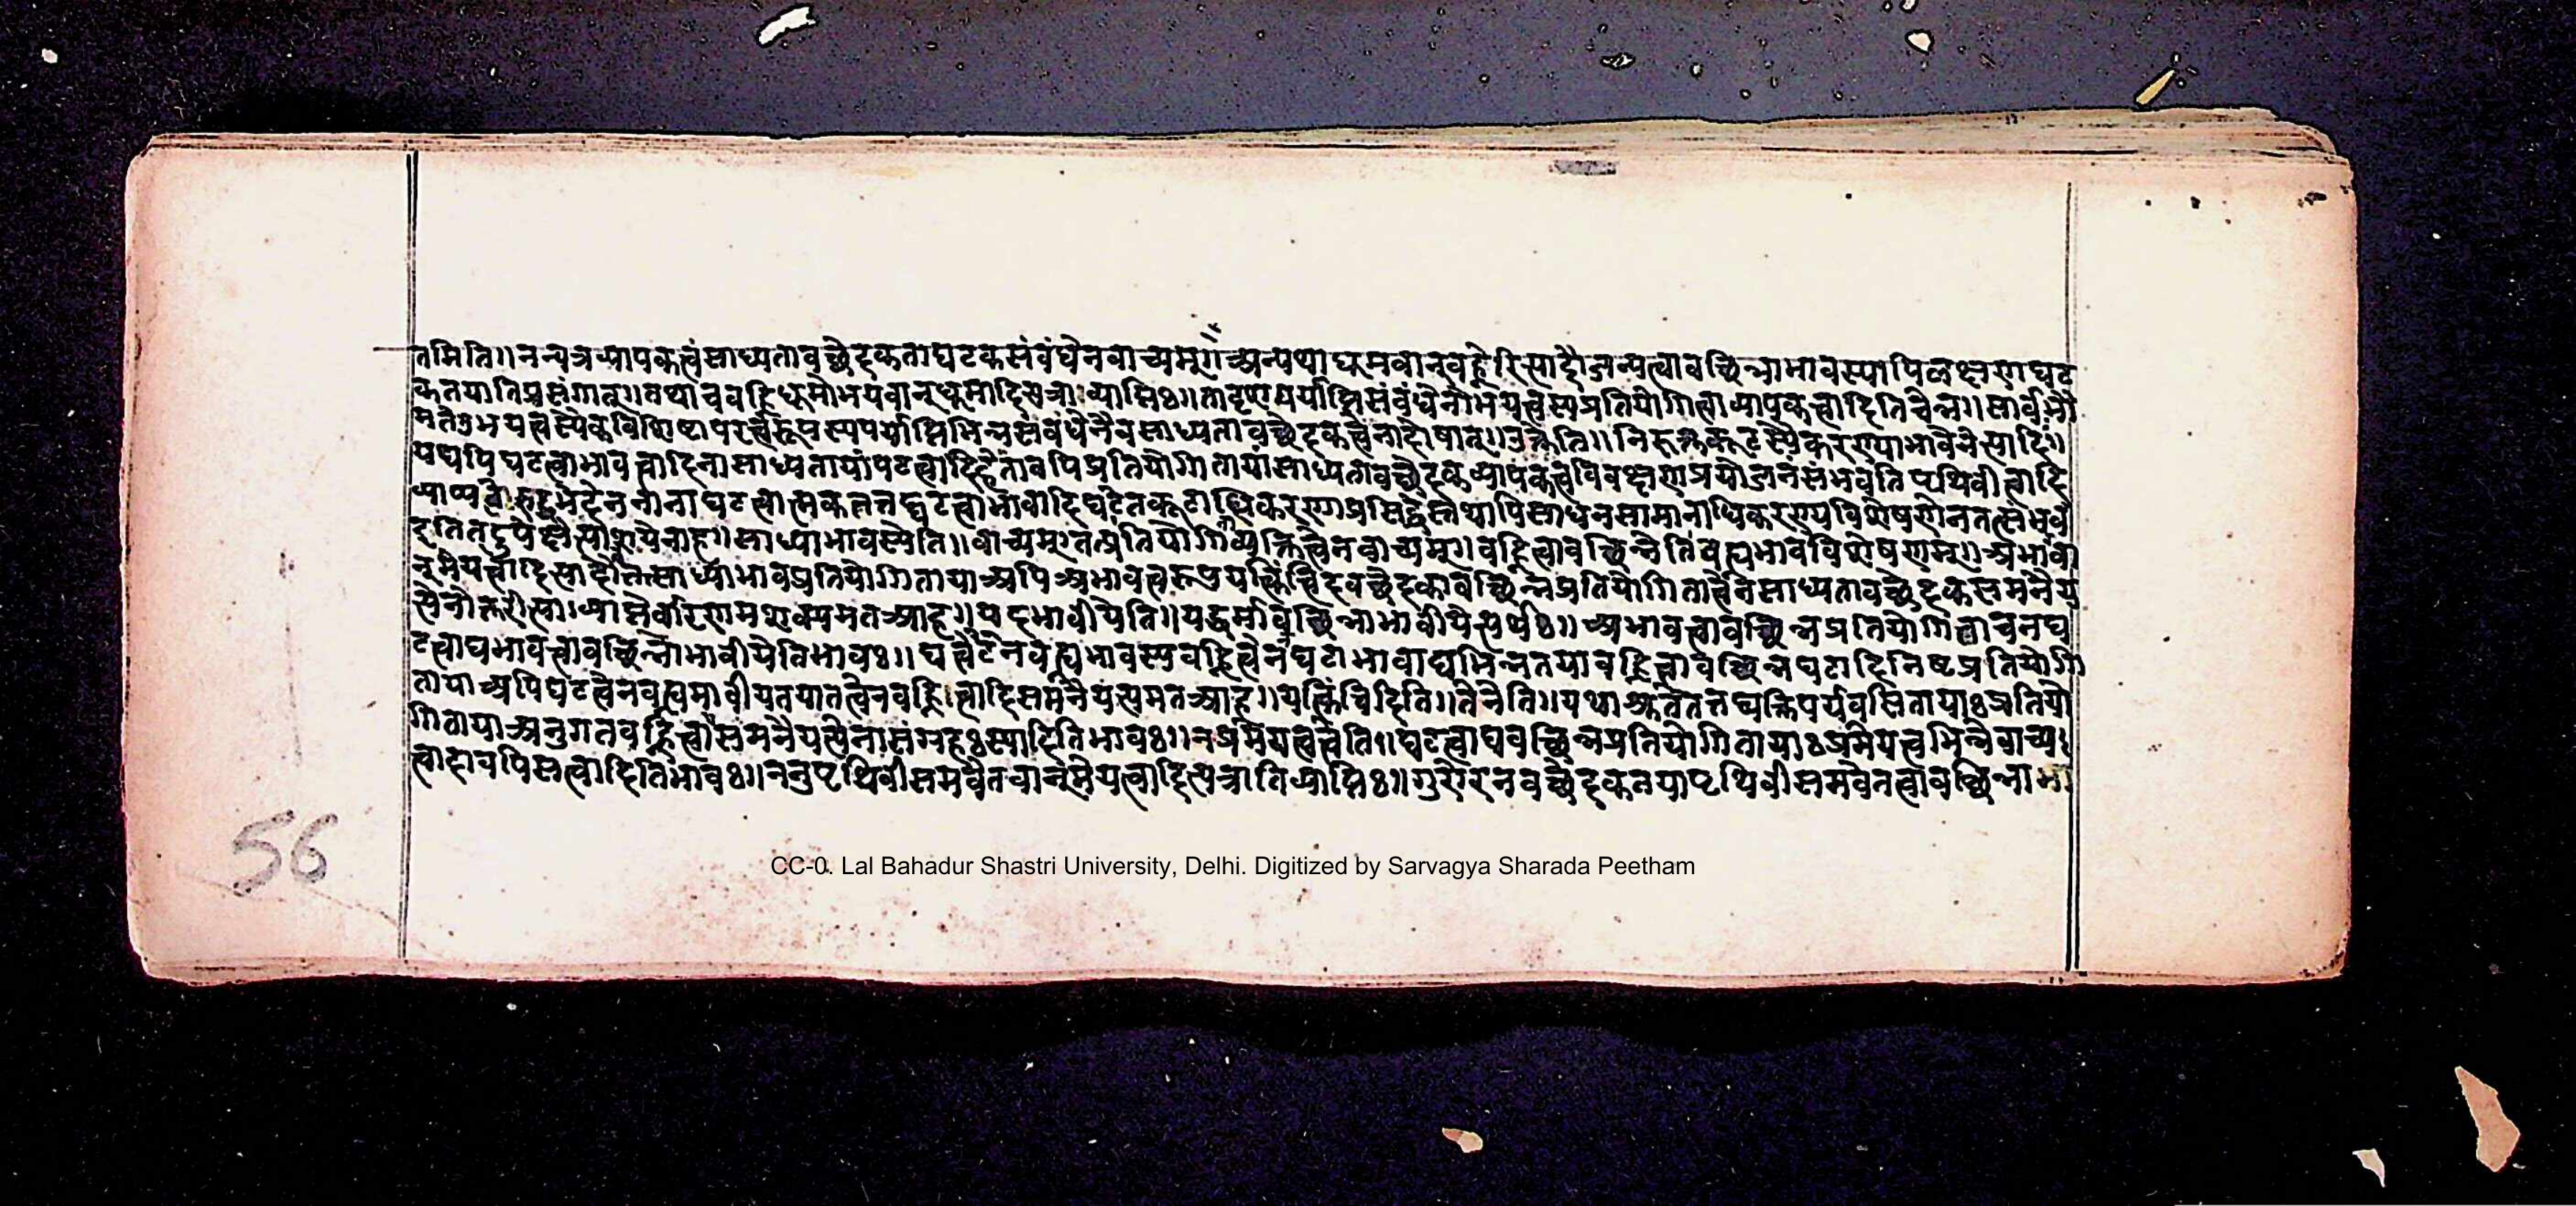 तमिति॥ नन्वत्रव्यापकत्वंसाध्यतावच्छेदकताघटकसंबंधेनवाच्यम्॥ अन्यथाधूमवान्वह्नेरित्यादौजन्यत्वावच्छिन्नाभावस्यापिलक्षणघट
कतयातिप्रसंगात्॥ तथाचवह्निधूमोभयवान्धूमादित्यत्राव्याप्तिः॥ पर्याप्तिसंबंधेनोभयत्वस्यप्रतियोगिताव्यापकत्वादितिचेन्न॥ सार्वभौ
मतेउभयत्वस्यैकविशिष्टापरत्वरूपस्यपर्याप्तिभिन्नसंबंधेनैवसाध्यतावच्छेदकत्वेनादोषात्॥ निरुक्तकूटस्यैकरण्याभावेनेत्यादिः॥
यद्यपिघटत्वाभावत्वादिनासाध्यतायांघटत्वादिप्रतियोगितायांसाध्यतावच्छेदकव्यापकत्वविवक्षणप्रयोजनंसंभवतिपृथिवीत्वादि
नानाघटत्वात्मकतत्तद्घटत्वाभावादिघटितकूटाधिकरणाप्रसिद्धेस्तथापिसाधनसामानाधिकरण्यविशेषणेनतत्संभव
साध्याभावस्येति॥ वाच्यम्॥ तत्प्रतियोगिव्यक्तित्वेनवाच्यम्॥ वह्नित्वावच्छिन्नेतिवह्न्यभावविशेषणम्॥ अभावा
साध्याभावप्रतियोगितायाअपिअभावत्वरूपयत्किंचिदवच्छेदकावच्छिन्नप्रतियोगितात्वेनसाध्यतावच्छेदकसमनैय
त्येनोक्तरीत्याव्याप्तेर्वारणमशक्यमतआह॥ यदभावीयेति॥ यद्धर्मावच्छिन्नाभावीयेत्यर्थः॥ अभावत्वावच्छिन्नप्रतियोगिताचनघ
टत्वाद्यभावत्वावच्छिन्नाभावीयेतिभावः॥ वह्न्यभावस्यवह्नित्वेनघटाभावाद्यभिन्नतयावह्नित्वावच्छिन्नघटादिनिष्टप्रतियोगि
तायाअपिघटत्वेनवह्न्यभावीयतयातत्वेनवह्नित्वादिसमनैयत्यमतआह॥ यत्किंचिदिति॥ तेनेति॥ पर्यवसितायाःप्रतियो
गितायाअनुगतवह्नित्वासमनैयत्येनासंग्रहःस्यादितिभावः॥ नप्रमेयत्वत्वेति॥ घटत्वाद्यवच्छिन्नप्रतियोगितायाःप्रमेयत्वभिन्नेवाच्य
त्वादावपिसत्वादितिभावः॥ ननुपृथिवीसमवेतवान्प्रमेयत्वादित्यत्रातिव्याप्तिः॥ गुरोरनवच्छेदकतयापृथिवीसमवेतत्वावच्छिन्नाभा
56
CC-0. Lal Bahadur Shastri University, Delhi. Digitized by Sarvagya Sharada Peetham